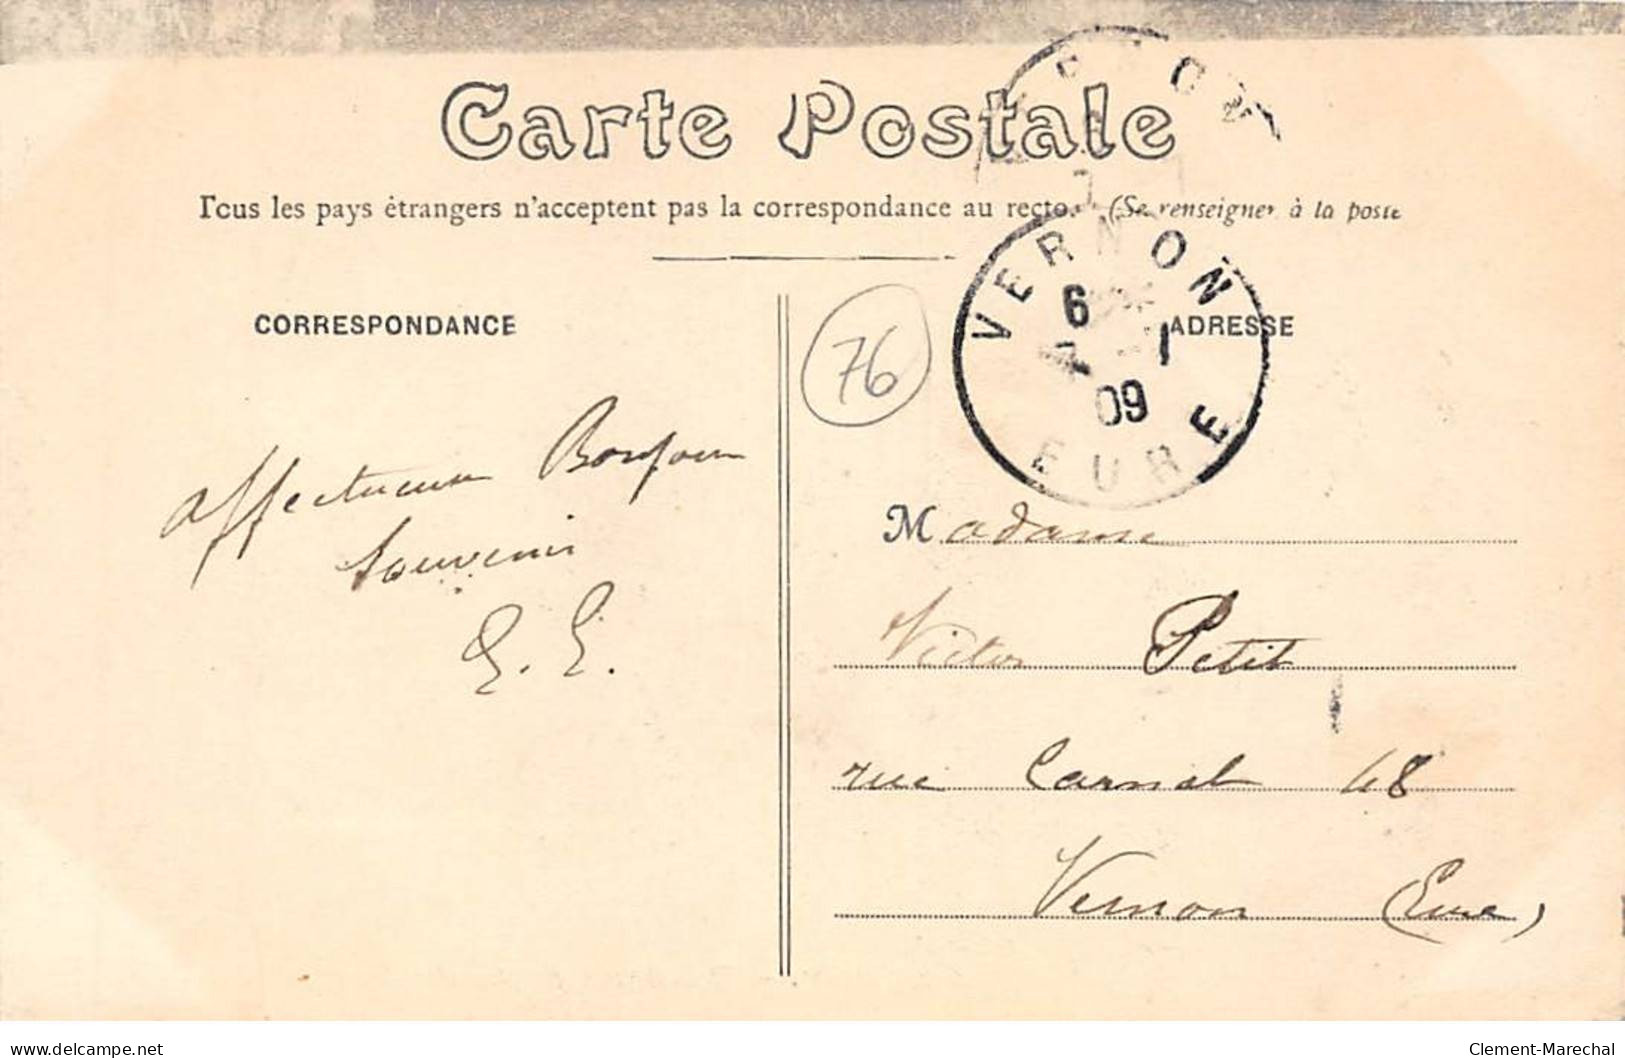 Carte Postale
Tous les pays étrangers n'acceptent pas la correspondance au recto. (Se renseigner à la poste
CORRESPONDANCE
ADRESSE
76
VERNON
6 -1
09
EURE
Affectueux Bonjour
Souvenir
E. E.
Madame
Victor Petit
rue Carnot 48
Vernon (Eure)
www.delcampe.net
Clement-Marechal